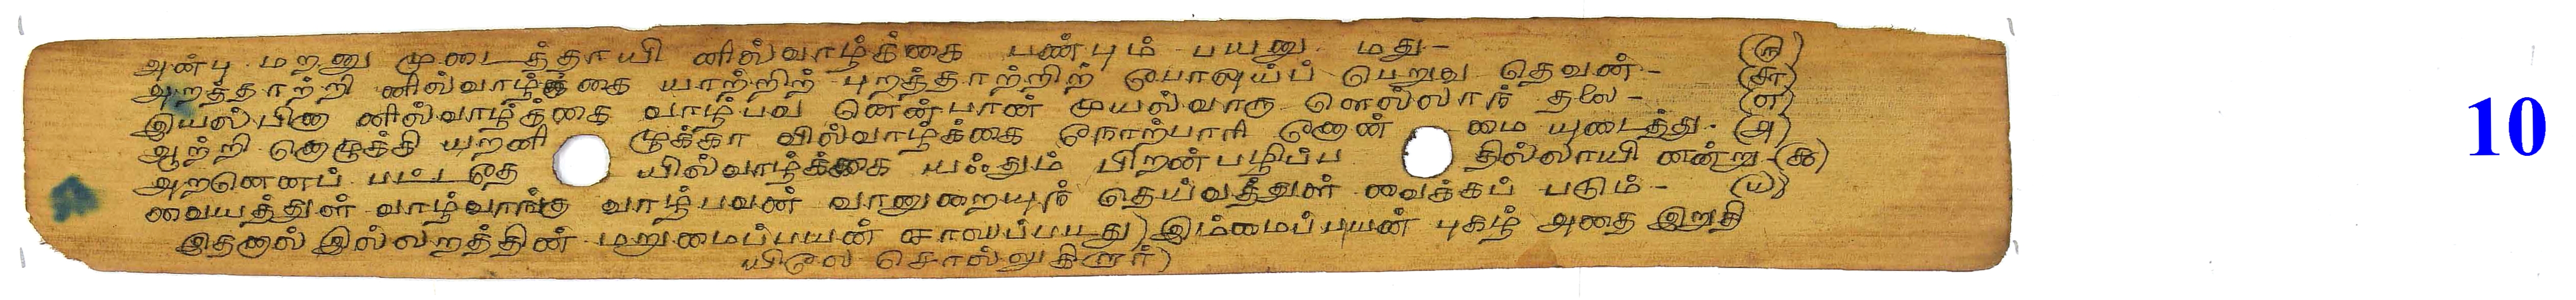 அன்பு மறனு முடைத்தாயி னில்வாழ்க்கை பண்பும் பயனு மது- (ரு)
அறத்தாற்றி னில்வாழ்க்கை யாற்றிற் புறத்தாற்றிற் போஒய்ப் பெறுவ தெவன்- (சா)
இயல்பினா னில்வாழ்க்கை வாழ்பவ னென்பான் முயல்வாரு ளெல்லாந் தலை- (எ)
ஆற்றி னொழுக்கி யறனி ழுக்கா வில்வாழ்க்கை நோற்பாரி னோன் மை யுடைத்து- (அ)
அறனெனப் பட்டதே யில்வாழ்க்கை யஃதும் பிறன்பழிப்ப தில்லாயி னன்று-(கூ)
வையத்துள் வாழ்வாங்கு வாழ்பவன் வானுறையுந் தெய்வத்துள் வைக்கப் படும்- (ய)
இதனால் இல்லறத்தின் மறுமைப்பயன் இம்மைப்பயன் புகழ் அதை இறுதி
யிலே சொல்லுகிறார்)
10